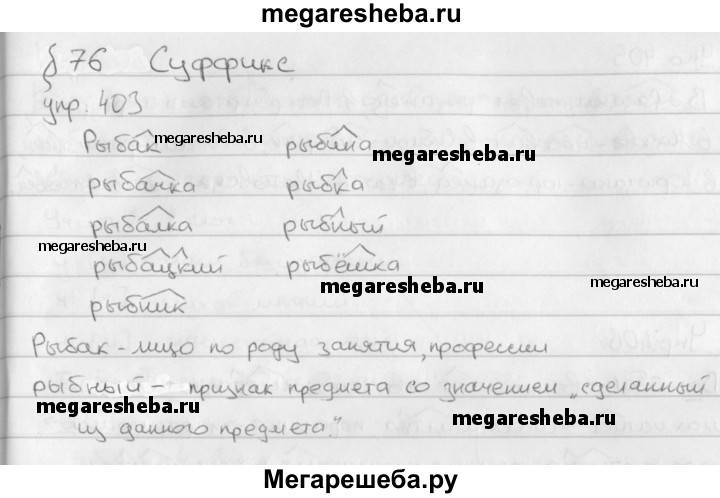 megaresheba.ru
§ 76 Суффикс
упр. 403
Рыбак megaresheba.ru рыбина megaresheba.ru
рыбачка рыбка
рыбалка рыбный
megaresheba.ru
рыбацкий рыбёшка
megaresheba.ru megaresheba.ru
рыбник
Рыбак - лицо по роду занятия, профессии
рыбный - признак предмета со значением „сделанный
megaresheba.ru megaresheba.ru
из данного предмета."
Мегарешеба.ру